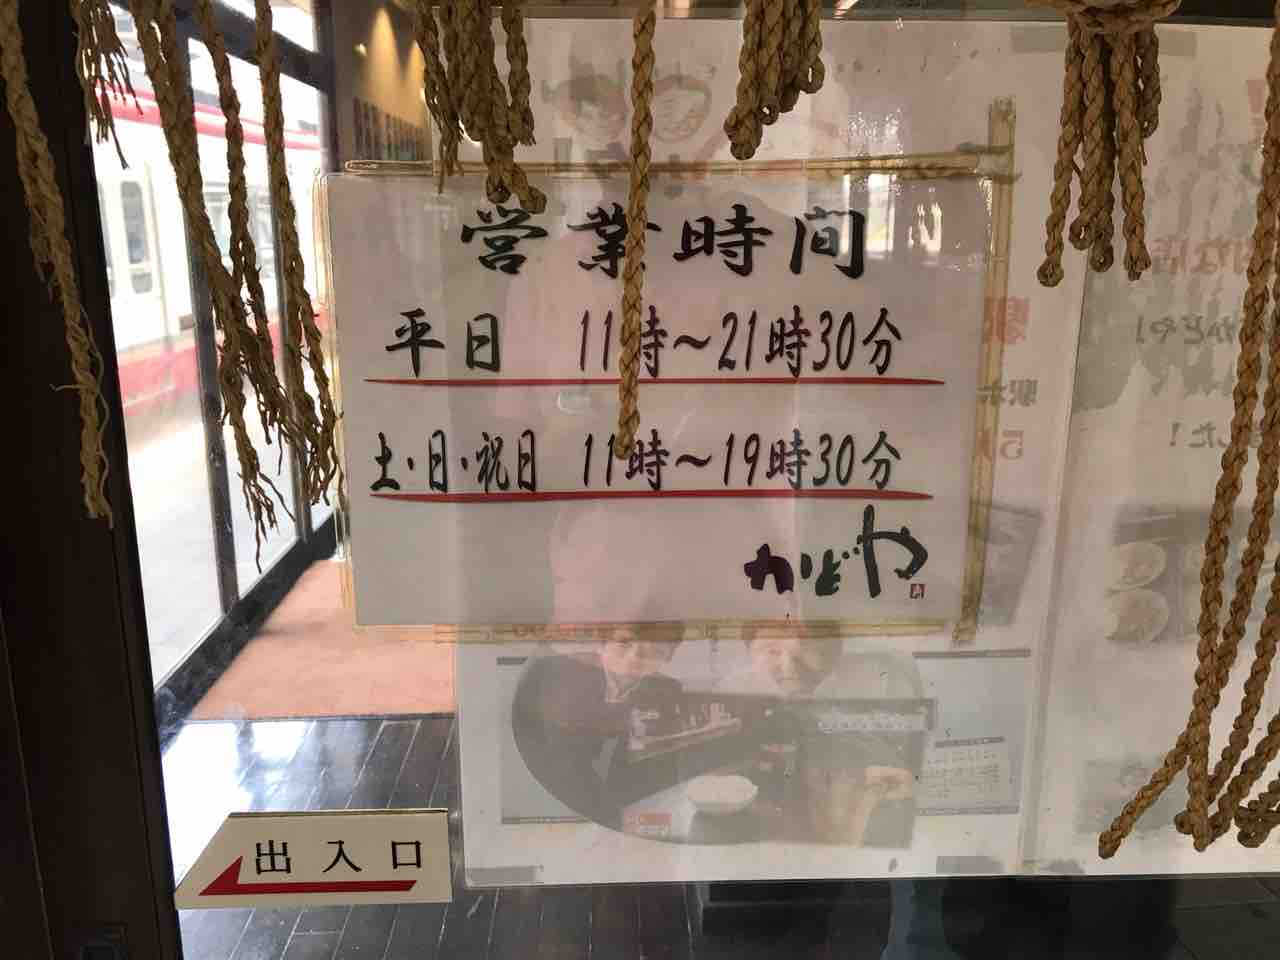 営業時間
平日 11時～21時30分
土・日・祝日 11時～19時30分
かどや
出入口